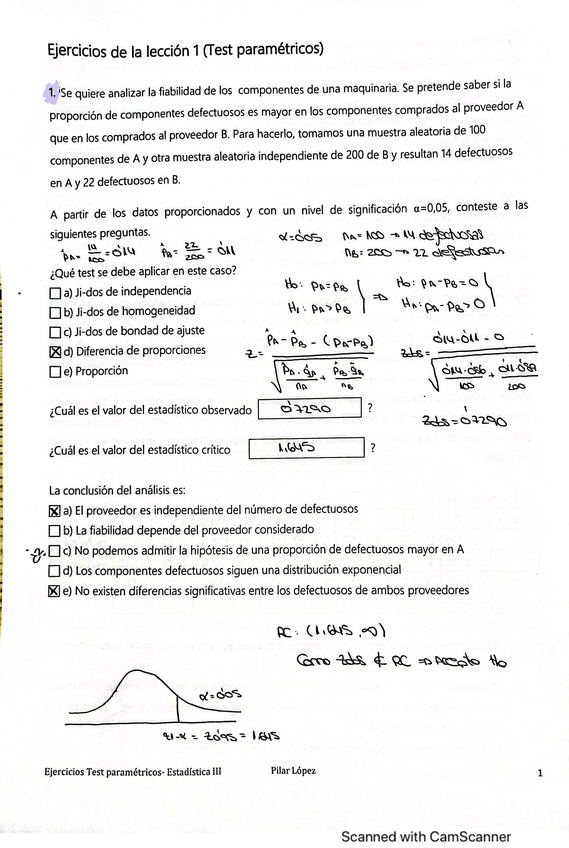 Ejercicios de la lección 1 (Test paramétricos)
1. Se quiere analizar la fiabilidad de los componentes de una maquinaria. Se pretende saber si la
proporción de componentes defectuosos es mayor en los componentes comprados al proveedor A
que en los comprados al proveedor B. Para hacerlo, tomamos una muestra aleatoria de 100
componentes de A y otra muestra aleatoria independiente de 200 de B y resultan 14 defectuosos
en A y 22 defectuosos en B.
A partir de los datos proporcionados y con un nivel de significación α=0,05, conteste a las
siguientes preguntas.
α=0'05 nA=100 → 14 defectuosas
nB=200 → 22 defectuosas
p̂A=14/100=0'14 p̂B=22/200=0'11
¿Qué test se debe aplicar en este caso?
a) Ji-dos de independencia
b) Ji-dos de homogeneidad
c) Ji-dos de bondad de ajuste
d) Diferencia de proporciones
e) Proporción
H0: pA=pB ⇒ H0: pA-pB=0
H1: pA>pB HA: pA-pB>0
z= p̂A-p̂B-(pA-pB) / √(p̂A·q̂A/nA + p̂B·q̂B/nB)
zobs= 0'14-0'11-0 / √(0'14·0'86/100 + 0'11·0'89/200)
zobs=0'7290
¿Cuál es el valor del estadístico observado 0'7290 ?
¿Cuál es el valor del estadístico crítico 1.645 ?
La conclusión del análisis es:
a) El proveedor es independiente del número de defectuosos
b) La fiabilidad depende del proveedor considerado
c) No podemos admitir la hipótesis de una proporción de defectuosos mayor en A
d) Los componentes defectuosos siguen una distribución exponencial
e) No existen diferencias significativas entre los defectuosos de ambos proveedores
RC: (1.645, ∞)
Como zobs ∉ RC ⇒ Acepto H0
α=0'05
z1-α = z0'95 = 1'645
Ejercicios Test paramétricos- Estadística III Pilar López 1
Scanned with CamScanner